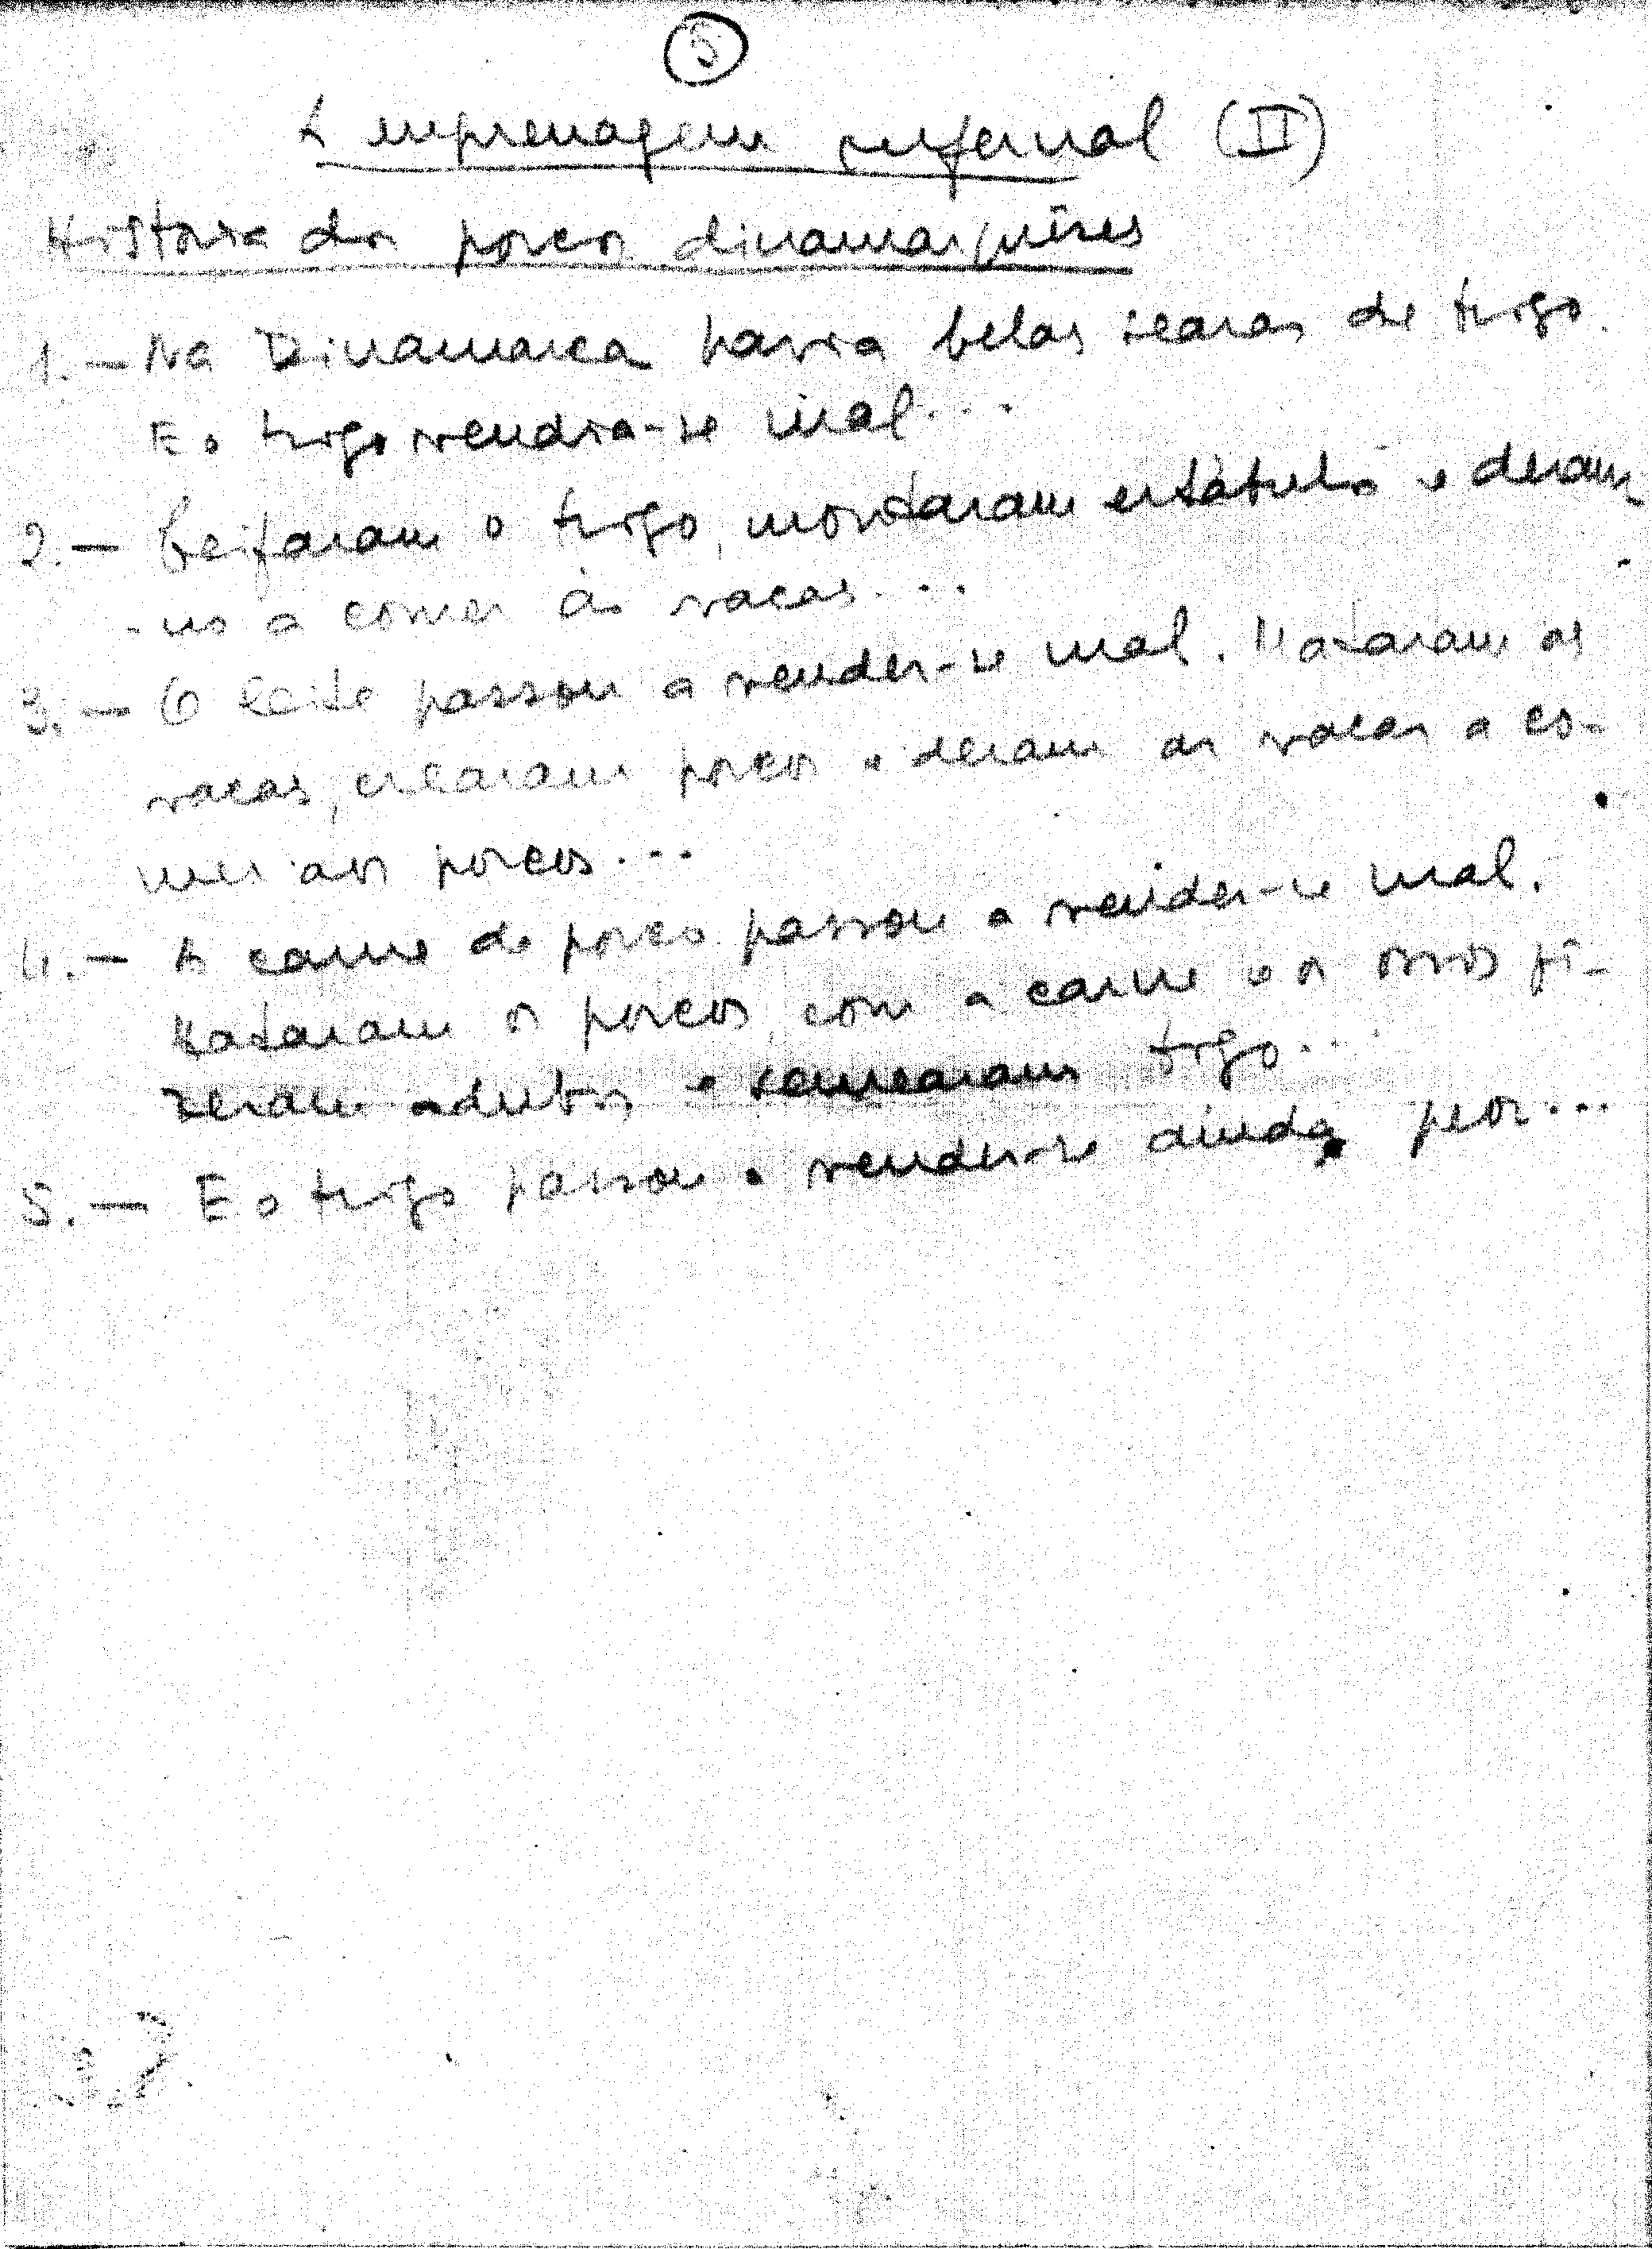 5
A engrenagem infernal (II)
História dos porcos dinamarqueses
1. — Na Dinamarca havia belas searas de trigo.
E o trigo vendia-se mal...
2. — Ceifaram o trigo, montaram estábulos e deram
-no a comer às vacas...
3. — O leite passou a vender-se mal. Mataram as
vacas, crearam porcos e deram as vacas a co-
mer aos porcos...
4. — A carne de porco passou a vender-se mal.
Mataram os porcos, com a carne e os ossos fi-
zeram adubos e semearam trigo...
5. — E o trigo passou a vender-se ainda peor...